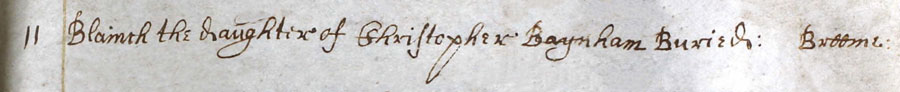 11 Blainch the daughter of Christopher Baynham Buried: Broome: